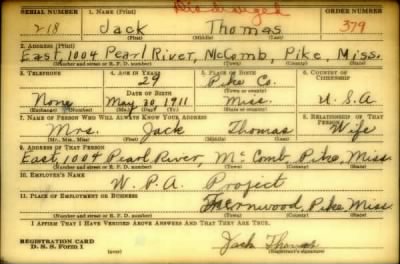 SERIAL NUMBER 1. NAME (Print) Discharged ORDER NUMBER
218 Jack Thomas 379
(First) (Middle) (Last)
2. ADDRESS (Print)
East 1004 Pearl River, McComb, Pike, Miss.
(Number and street or R. F. D. number) (Town) (County) (State)
3. TELEPHONE 4. AGE IN YEARS 5. PLACE OF BIRTH 6. COUNTRY OF CITIZENSHIP
29 Pike Co.
DATE OF BIRTH (Town or county)
None May 20, 1911 Miss. U.S.A
(Mo.) (Day) (Yr.) (State or country)
7. NAME OF PERSON WHO WILL ALWAYS KNOW YOUR ADDRESS 8. RELATIONSHIP OF THAT PERSON
Mrs. Jack Thomas Wife
(Mr., Mrs., Miss) (First) (Middle) (Last)
9. ADDRESS OF THAT PERSON
East, 1004 Pearl River, McComb, Pike, Miss.
(Number and street or R. F. D. number) (Town) (County) (State)
10. EMPLOYER'S NAME
W. P. A. Project
11. PLACE OF EMPLOYMENT OR BUSINESS
Fernwood, Pike, Miss
(Number and street or R. F. D. number) (Town) (County) (State)
I AFFIRM THAT I HAVE VERIFIED ABOVE ANSWERS AND THAT THEY ARE TRUE.
REGISTRATION CARD
D. S. S. Form 1 Jack Thomas
(Registrant's signature)